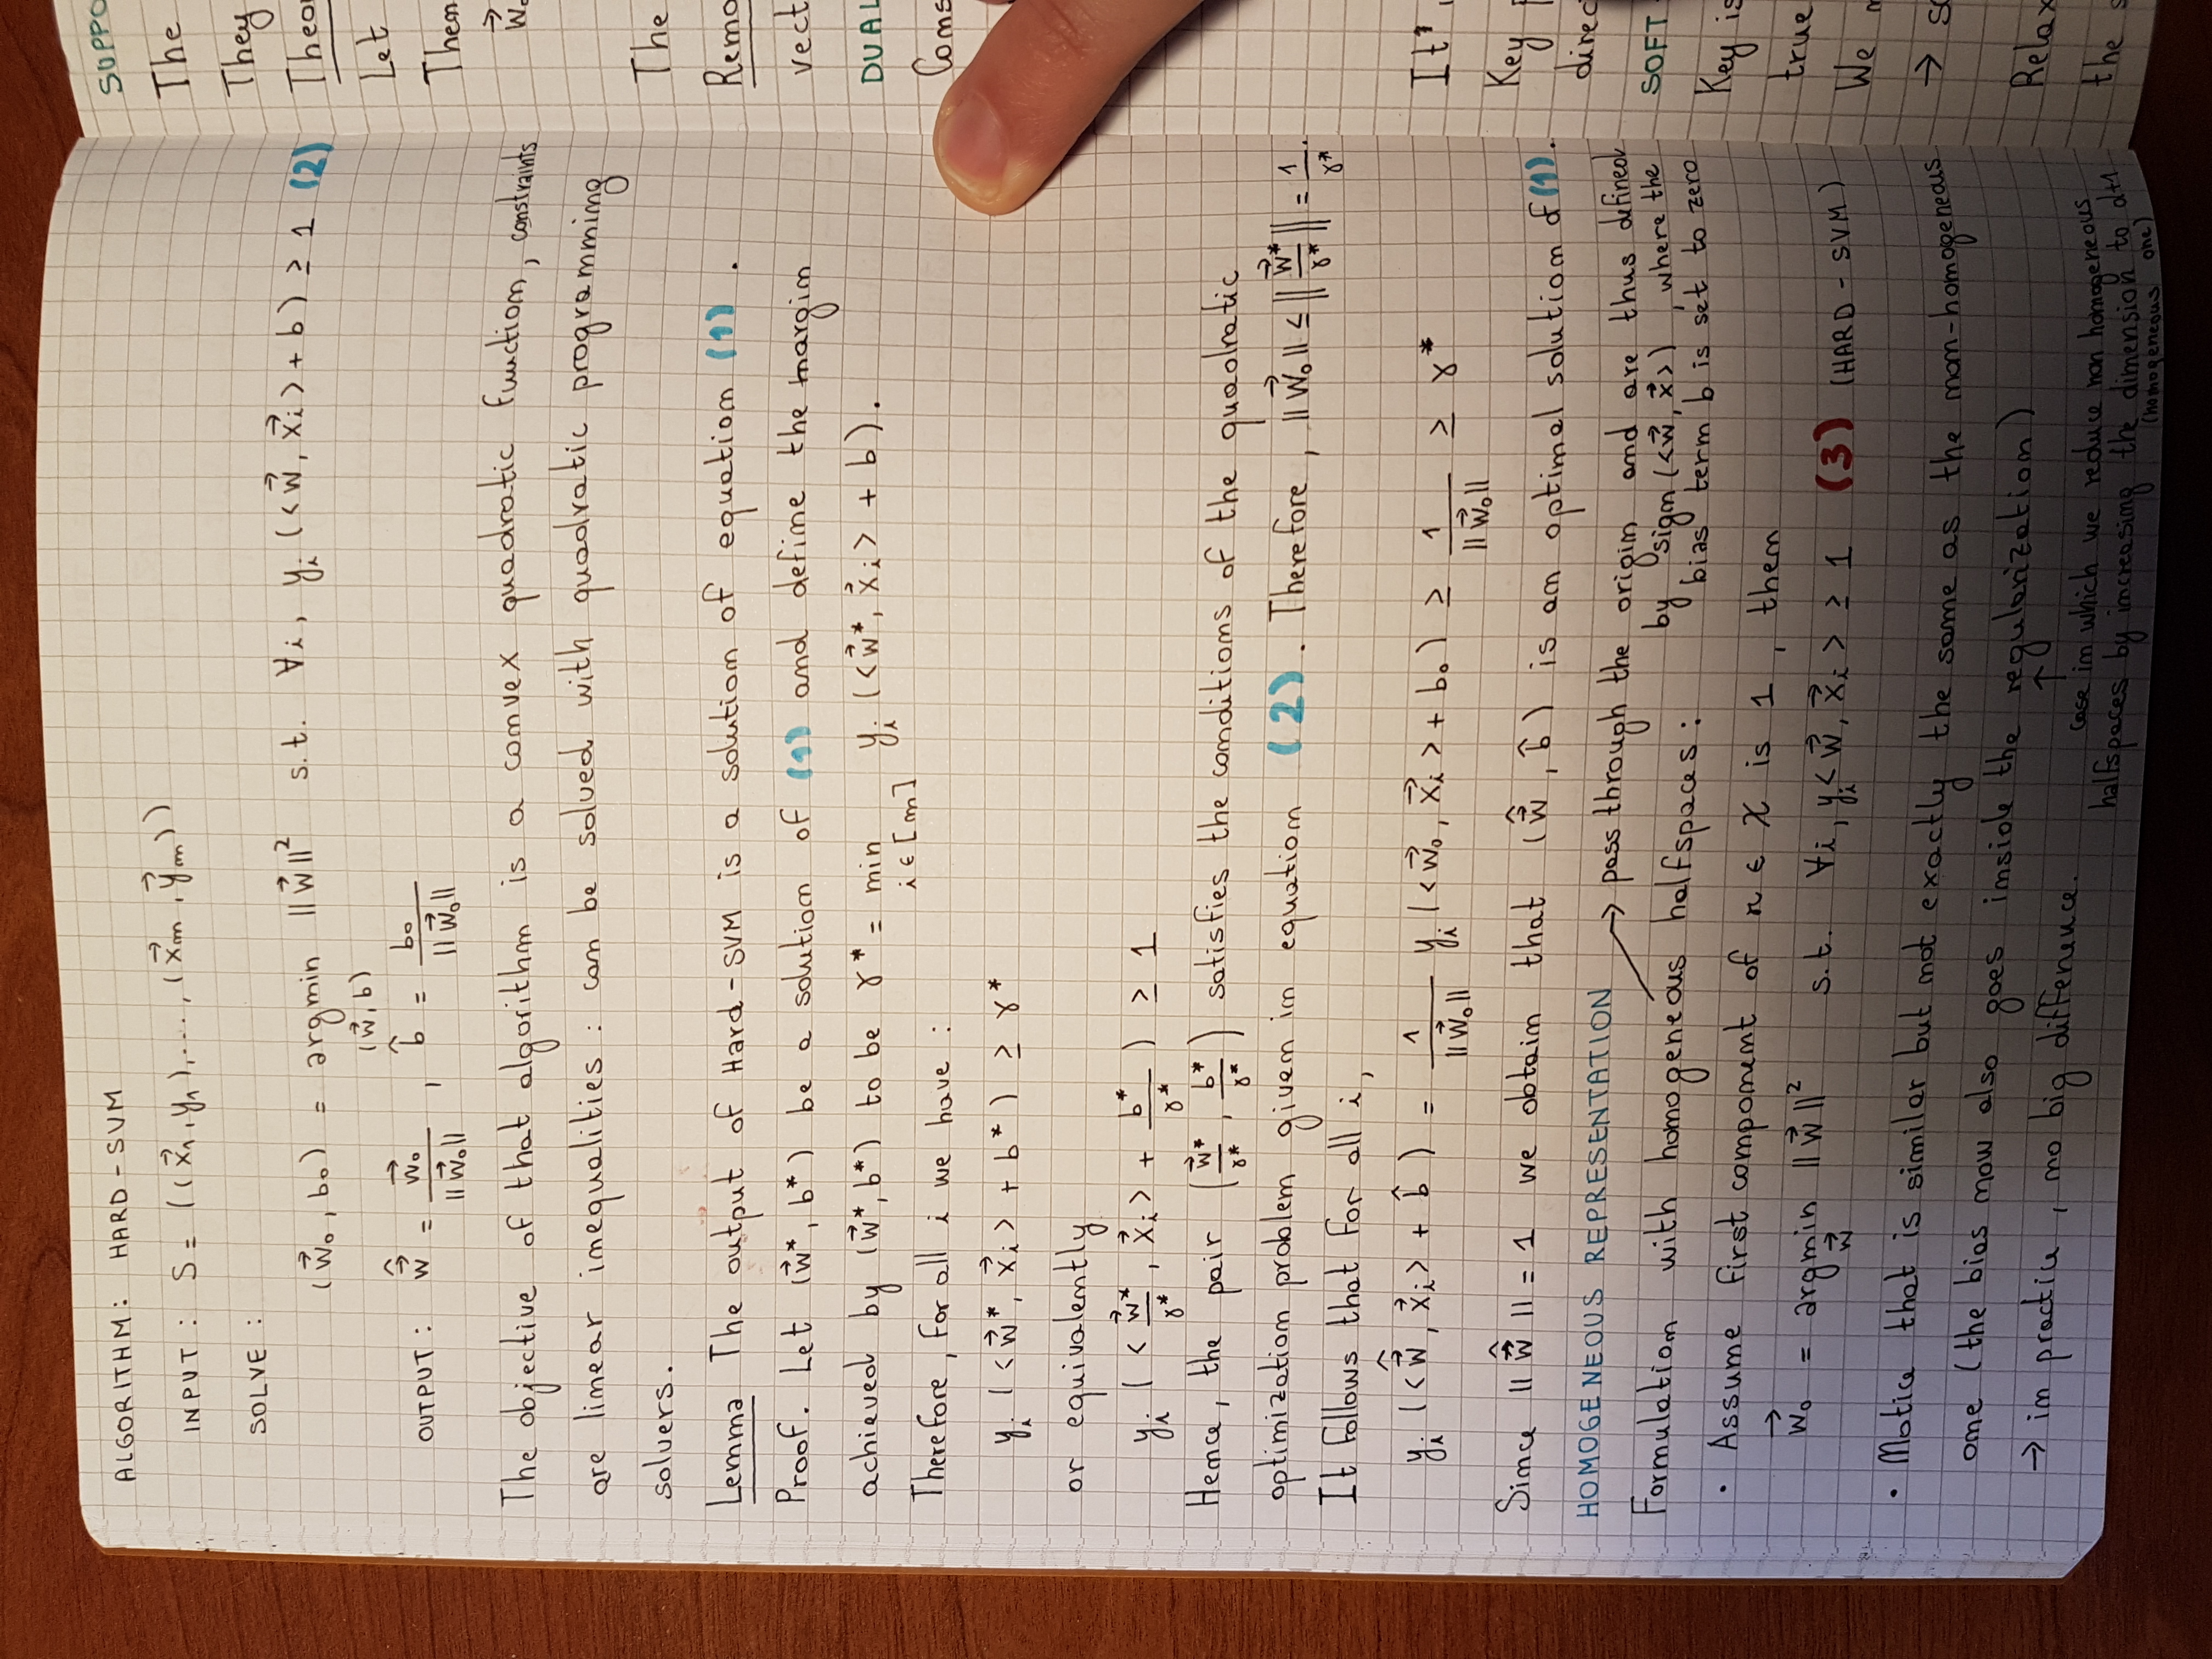 ALGORITHM: HARD-SVM
INPUT: S = ((x⃗₁, y₁), ..., (x⃗ₘ, y⃗ₘ))
SOLVE:
(w⃗₀, b₀) = argmin ||w⃗||² s.t. ∀i, yᵢ(<w⃗, x⃗ᵢ> + b) ≥ 1 (2)
(w⃗, b)
OUTPUT: ŵ⃗ = w⃗₀ / ||w⃗₀||, b̂ = b₀ / ||w⃗₀||
The objective of that algorithm is a convex quadratic function, constraints
are linear inequalities: can be solved with quadratic programming
solvers.
Lemma The output of Hard-SVM is a solution of equation (1).
Proof. Let (w⃗*, b*) be a solution of (1) and define the margin
achieved by (w⃗*, b*) to be γ* = min yᵢ(<w⃗*, x⃗ᵢ> + b).
i ∈ [m]
Therefore, for all i we have:
yᵢ(<w⃗*, x⃗ᵢ> + b*) ≥ γ*
or equivalently
yᵢ(<w⃗*/γ*, x⃗ᵢ> + b*/γ*) ≥ 1
Hence, the pair (w⃗*/γ*, b*/γ*) satisfies the conditions of the quadratic
optimization problem given in equation (2). Therefore, ||w⃗₀|| ≤ ||w⃗*/γ*|| = 1/γ*.
It follows that for all i,
yᵢ(<ŵ⃗, x⃗ᵢ> + b̂) = 1/||w⃗₀|| yᵢ(<w⃗₀, x⃗ᵢ> + b₀) ≥ 1/||w⃗₀|| ≥ γ*
Since ||ŵ⃗|| = 1 we obtain that (ŵ⃗, b̂) is an optimal solution of (1).
HOMOGENEOUS REPRESENTATION
→ pass through the origin and are thus defined
by sign(<w⃗, x⃗>), where the
bias term b is set to zero
Formulation with homogeneous halfspaces:
• Assume first component of x ∈ X is 1, then
w⃗₀ = argmin ||w⃗||² s.t. ∀i, yᵢ<w⃗, x⃗ᵢ> ≥ 1 (3) (HARD-SVM)
w⃗
• Notice that is similar but not exactly the same as the non-homogeneous
one (the bias now also goes inside the regularization)
→ in practice, no big difference.
↑
case in which we reduce non homogeneous
halfspaces by increasing the dimension to d+1
(homogeneous one)
SUPPO
The
They
Theo
Let
Then
w⃗₀
The
Rema
vect
DUAL
Cons
It'
Key
direc
SOFT
Key is
true
We
→ so
Relax
the s